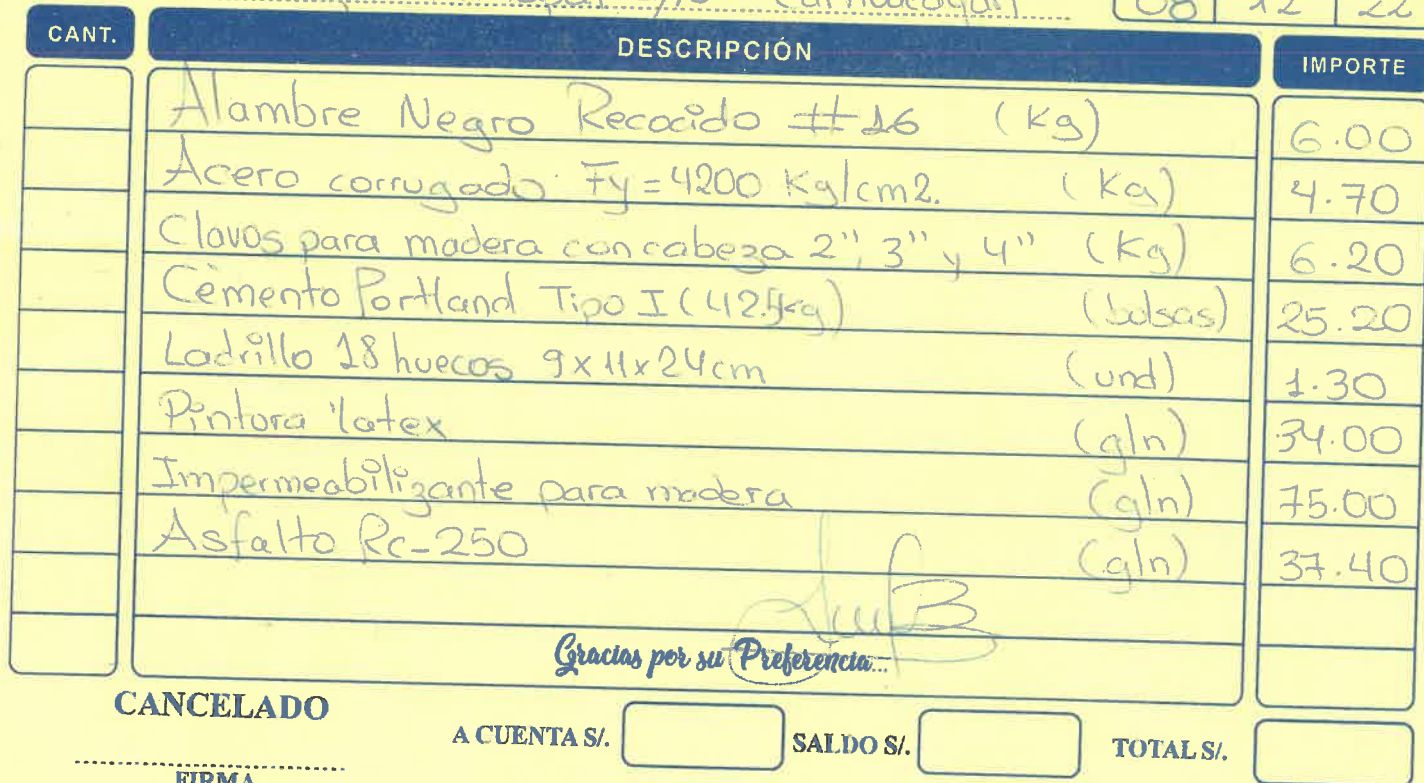 08 12 22
CANT. DESCRIPCIÓN IMPORTE
Alambre Negro Recocido #16 (Kg) 6.00
Acero corrugado Fy=4200 Kg/cm2. (Kg) 4.70
Clavos para madera con cabeza 2", 3" y 4" (Kg) 6.20
Cemento Portland Tipo I (42.5kg) (bolsas) 25.20
Ladrillo 18 huecos 9x11x24cm (und) 1.30
Pintura latex (gln) 34.00
Impermeabilizante para madera (gln) 75.00
Asfalto Rc-250 (gln) 37.40
Gracias por su Preferencia...
CANCELADO
A CUENTA S/. SALDO S/. TOTAL S/.
FIRMA